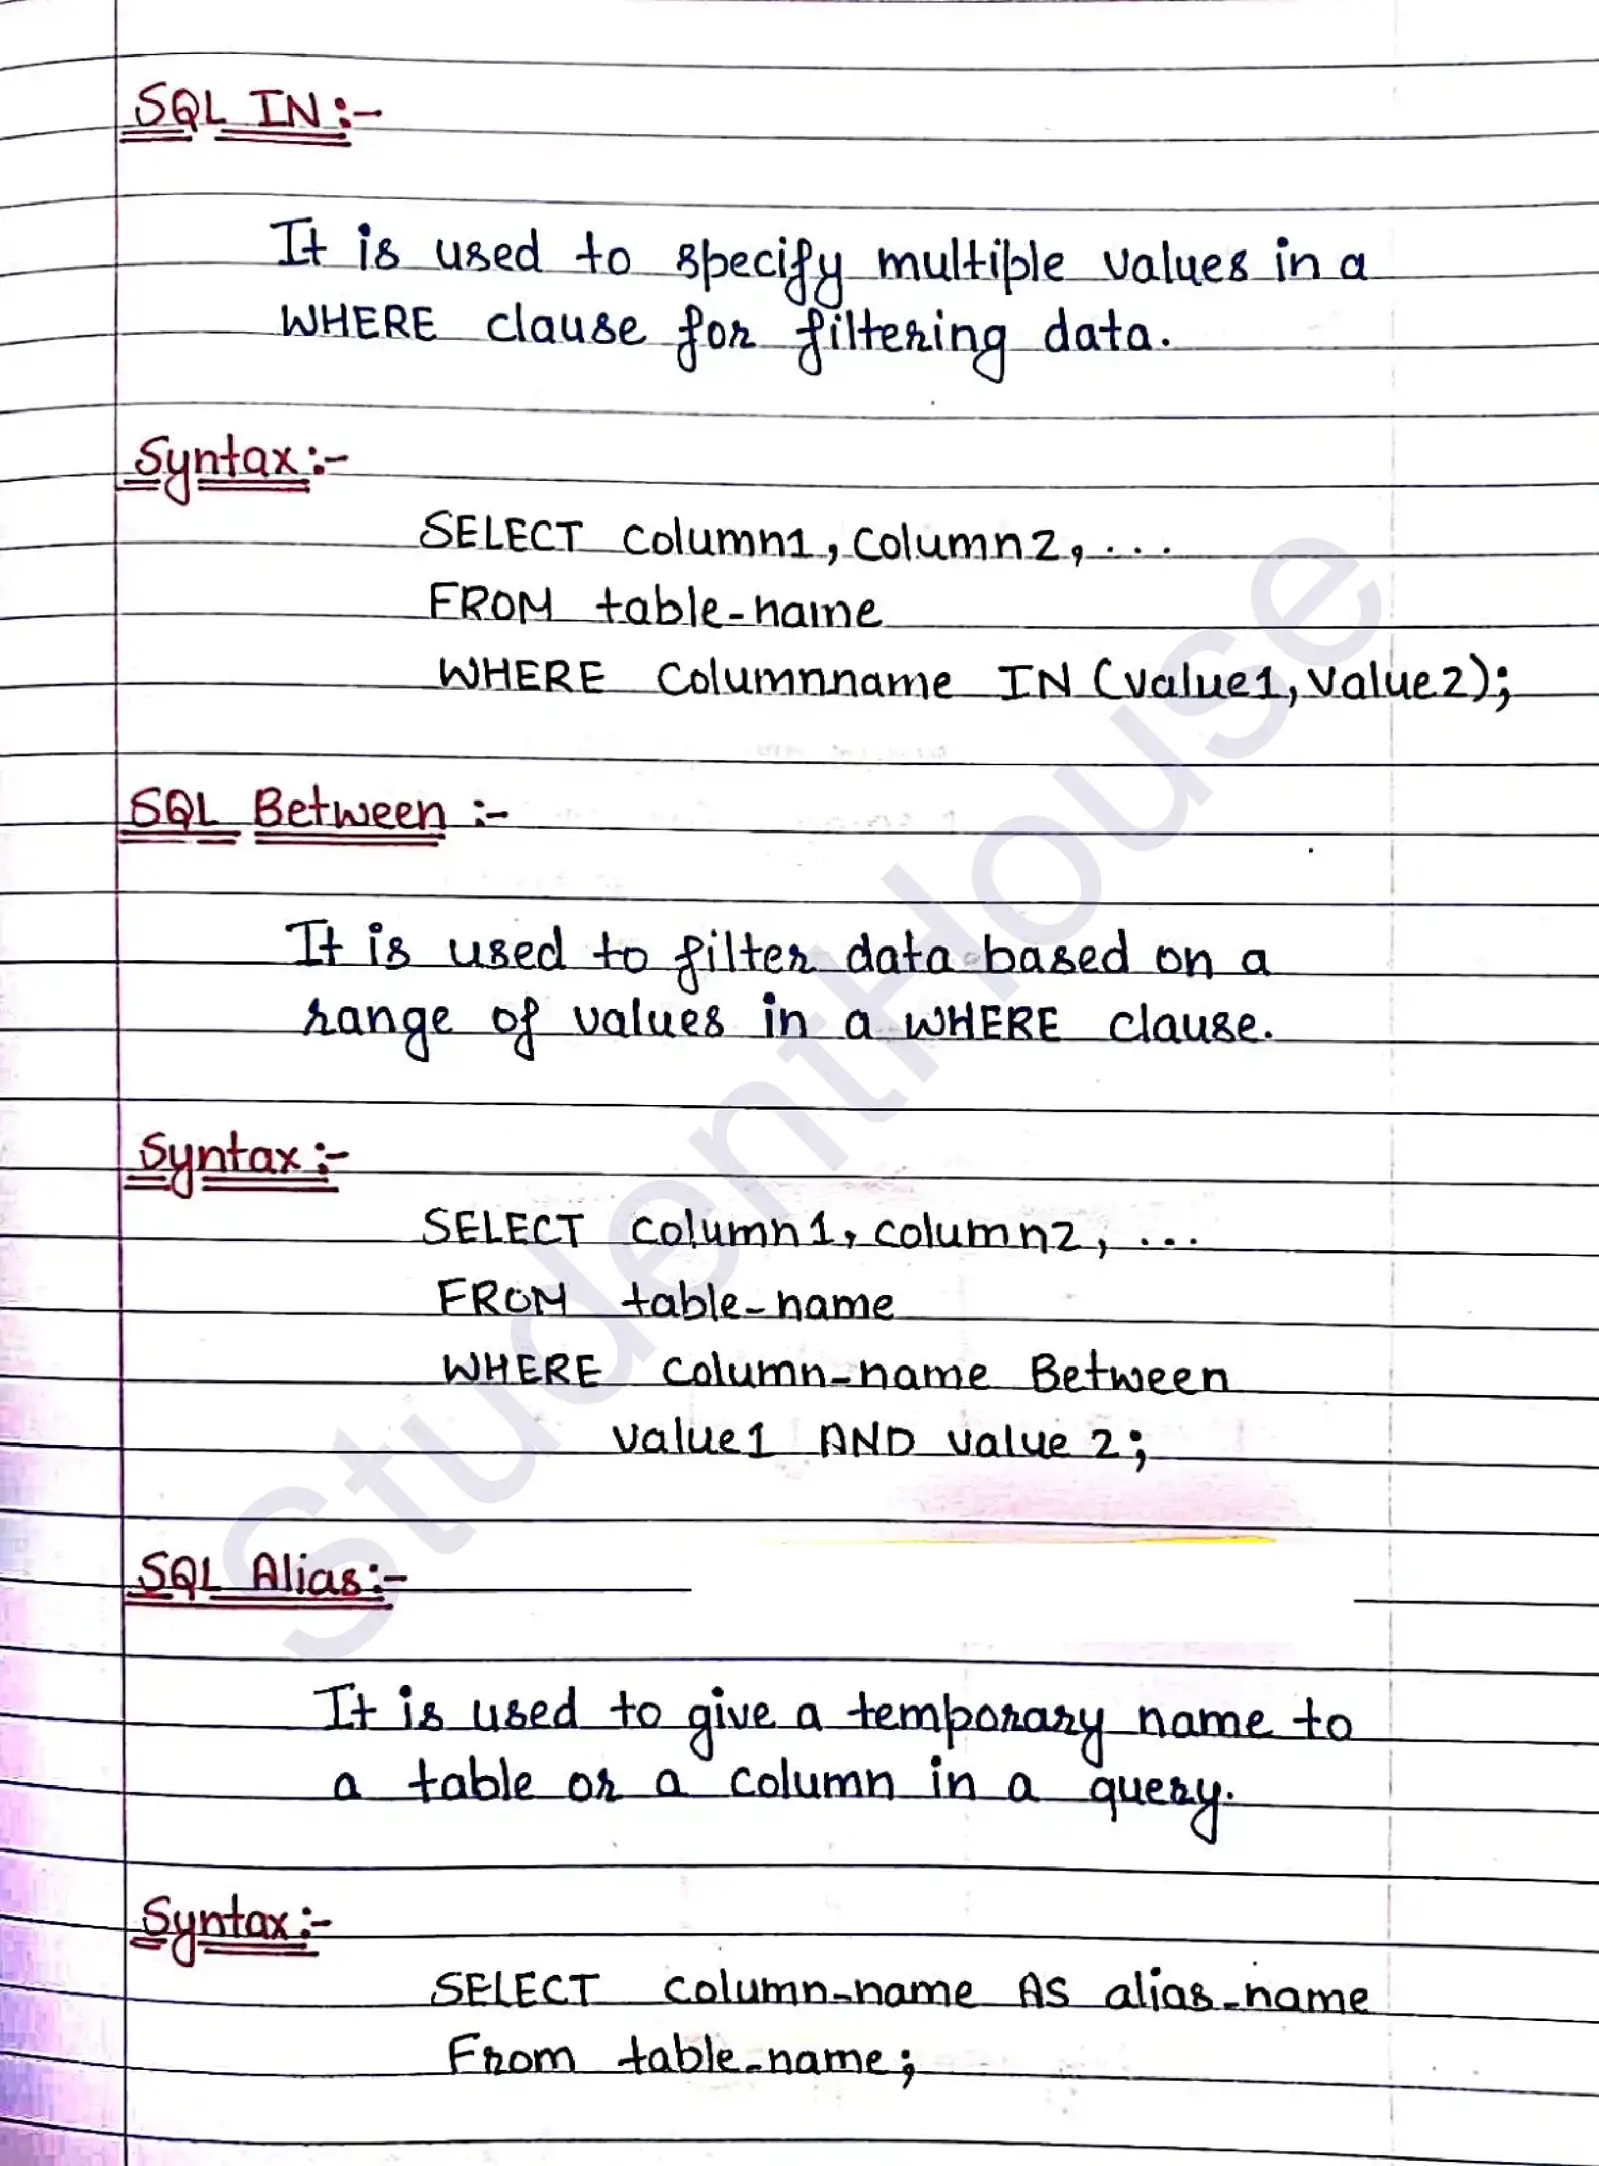 SQL IN:-
It is used to specify multiple values in a
WHERE clause for filtering data.
Syntax:-
SELECT column1, column2, ...
FROM table-name
WHERE Columnname IN (value1, value2);
SQL Between :-
It is used to filter data based on a
range of values in a WHERE clause.
Syntax:-
SELECT column1, column2, ...
FROM table-name
WHERE column-name Between
value1 AND value 2;
SQL Alias:-
It is used to give a temporary name to
a table or a column in a query.
Syntax:-
SELECT column-name AS alias-name
From table-name;
StudentHouse